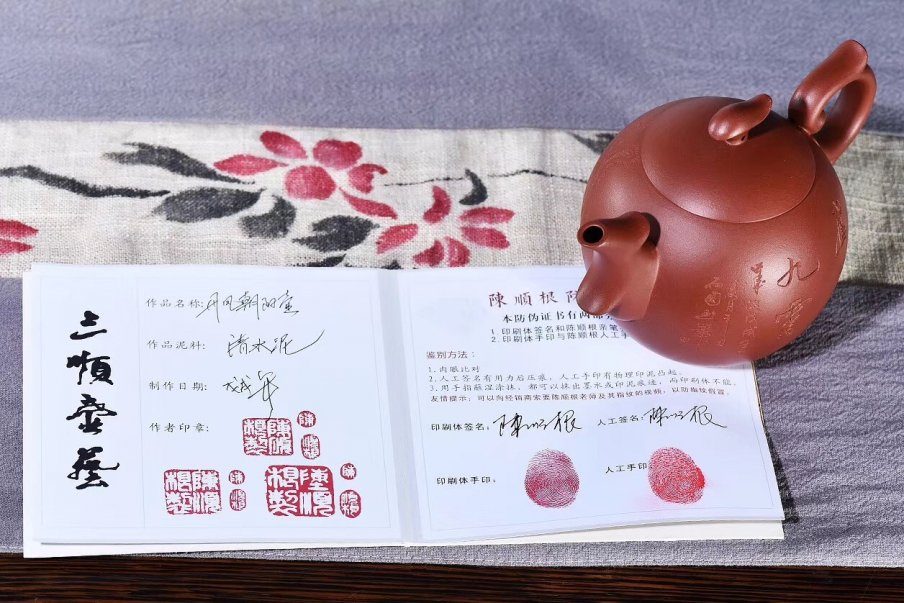 三順壺藝
作品名称:丹凤朝阳壶
作品泥料:清水泥
制作日期:戊戌年
作者印章:
陳順根製
陳順根製
陳順根製
陳順根陶
本防伪证书有两部
1. 印刷体签名和陈顺根亲笔
2. 印刷体手印与陈顺根人工手
鉴别方法:
1. 肉眼比对
2. 人工签名有用力后压痕,人工手印有物理印泥凸起。
3. 用手指蘸湿涂抹,都可以抹出墨水或印泥痕迹,而印刷体不能。
友情提示:可以向经销商索要陈顺根老师及其指纹的视频,以防指纹假冒。
印刷体签名:陳顺根
人工签名:陳顺根
印刷体手印:
人工手印: